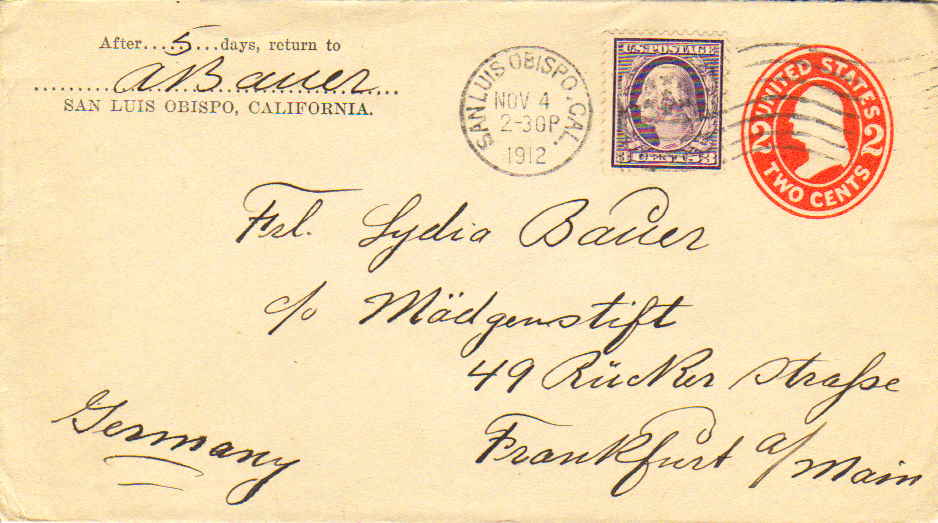 After.....5....days, return to
A Bauer
SAN LUIS OBISPO, CALIFORNIA.
SAN LUIS OBISPO, CAL.
NOV 4
2-30P
1912
U.S. POSTAGE
3 CENTS 3
UNITED STATES
2 2
TWO CENTS
Frl. Lydia Bauer
c/o Mädgenstift
49 Rücker straße
Frankfurt a/Main
Germany